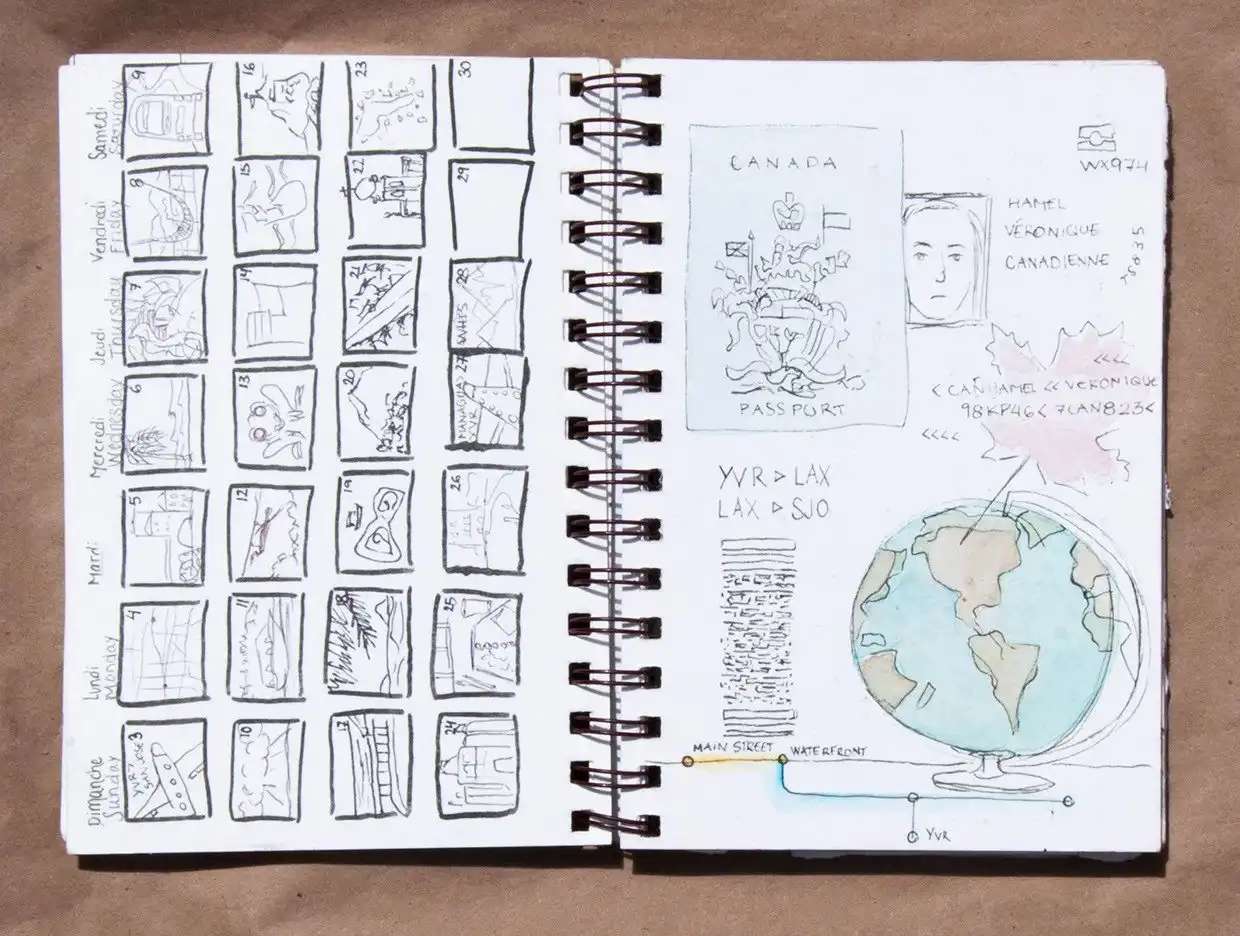 Dimanche Lundi Mardi Mercredi Jeudi Vendredi Samedi
Sunday Monday Wednesday Thursday Friday Saturday
3 4 5 6 7 8 9
YVR>
SAN JOSE
10 11 12 13 14 15 16
17 18 19 20 21 22 23
24 25 26 27 28 29 30
MANAGUA>
YVR
CANADA
PASSPORT
WX974
HAMEL
VÉRONIQUE
CANADIENNE
<<<<
<CAÑHAMEL<<VERONIQUE
98KP46< 7CAN823<
<<<<
YVR ▷ LAX
LAX ▷ SJO
MAIN STREET
WATERFRONT
YVR